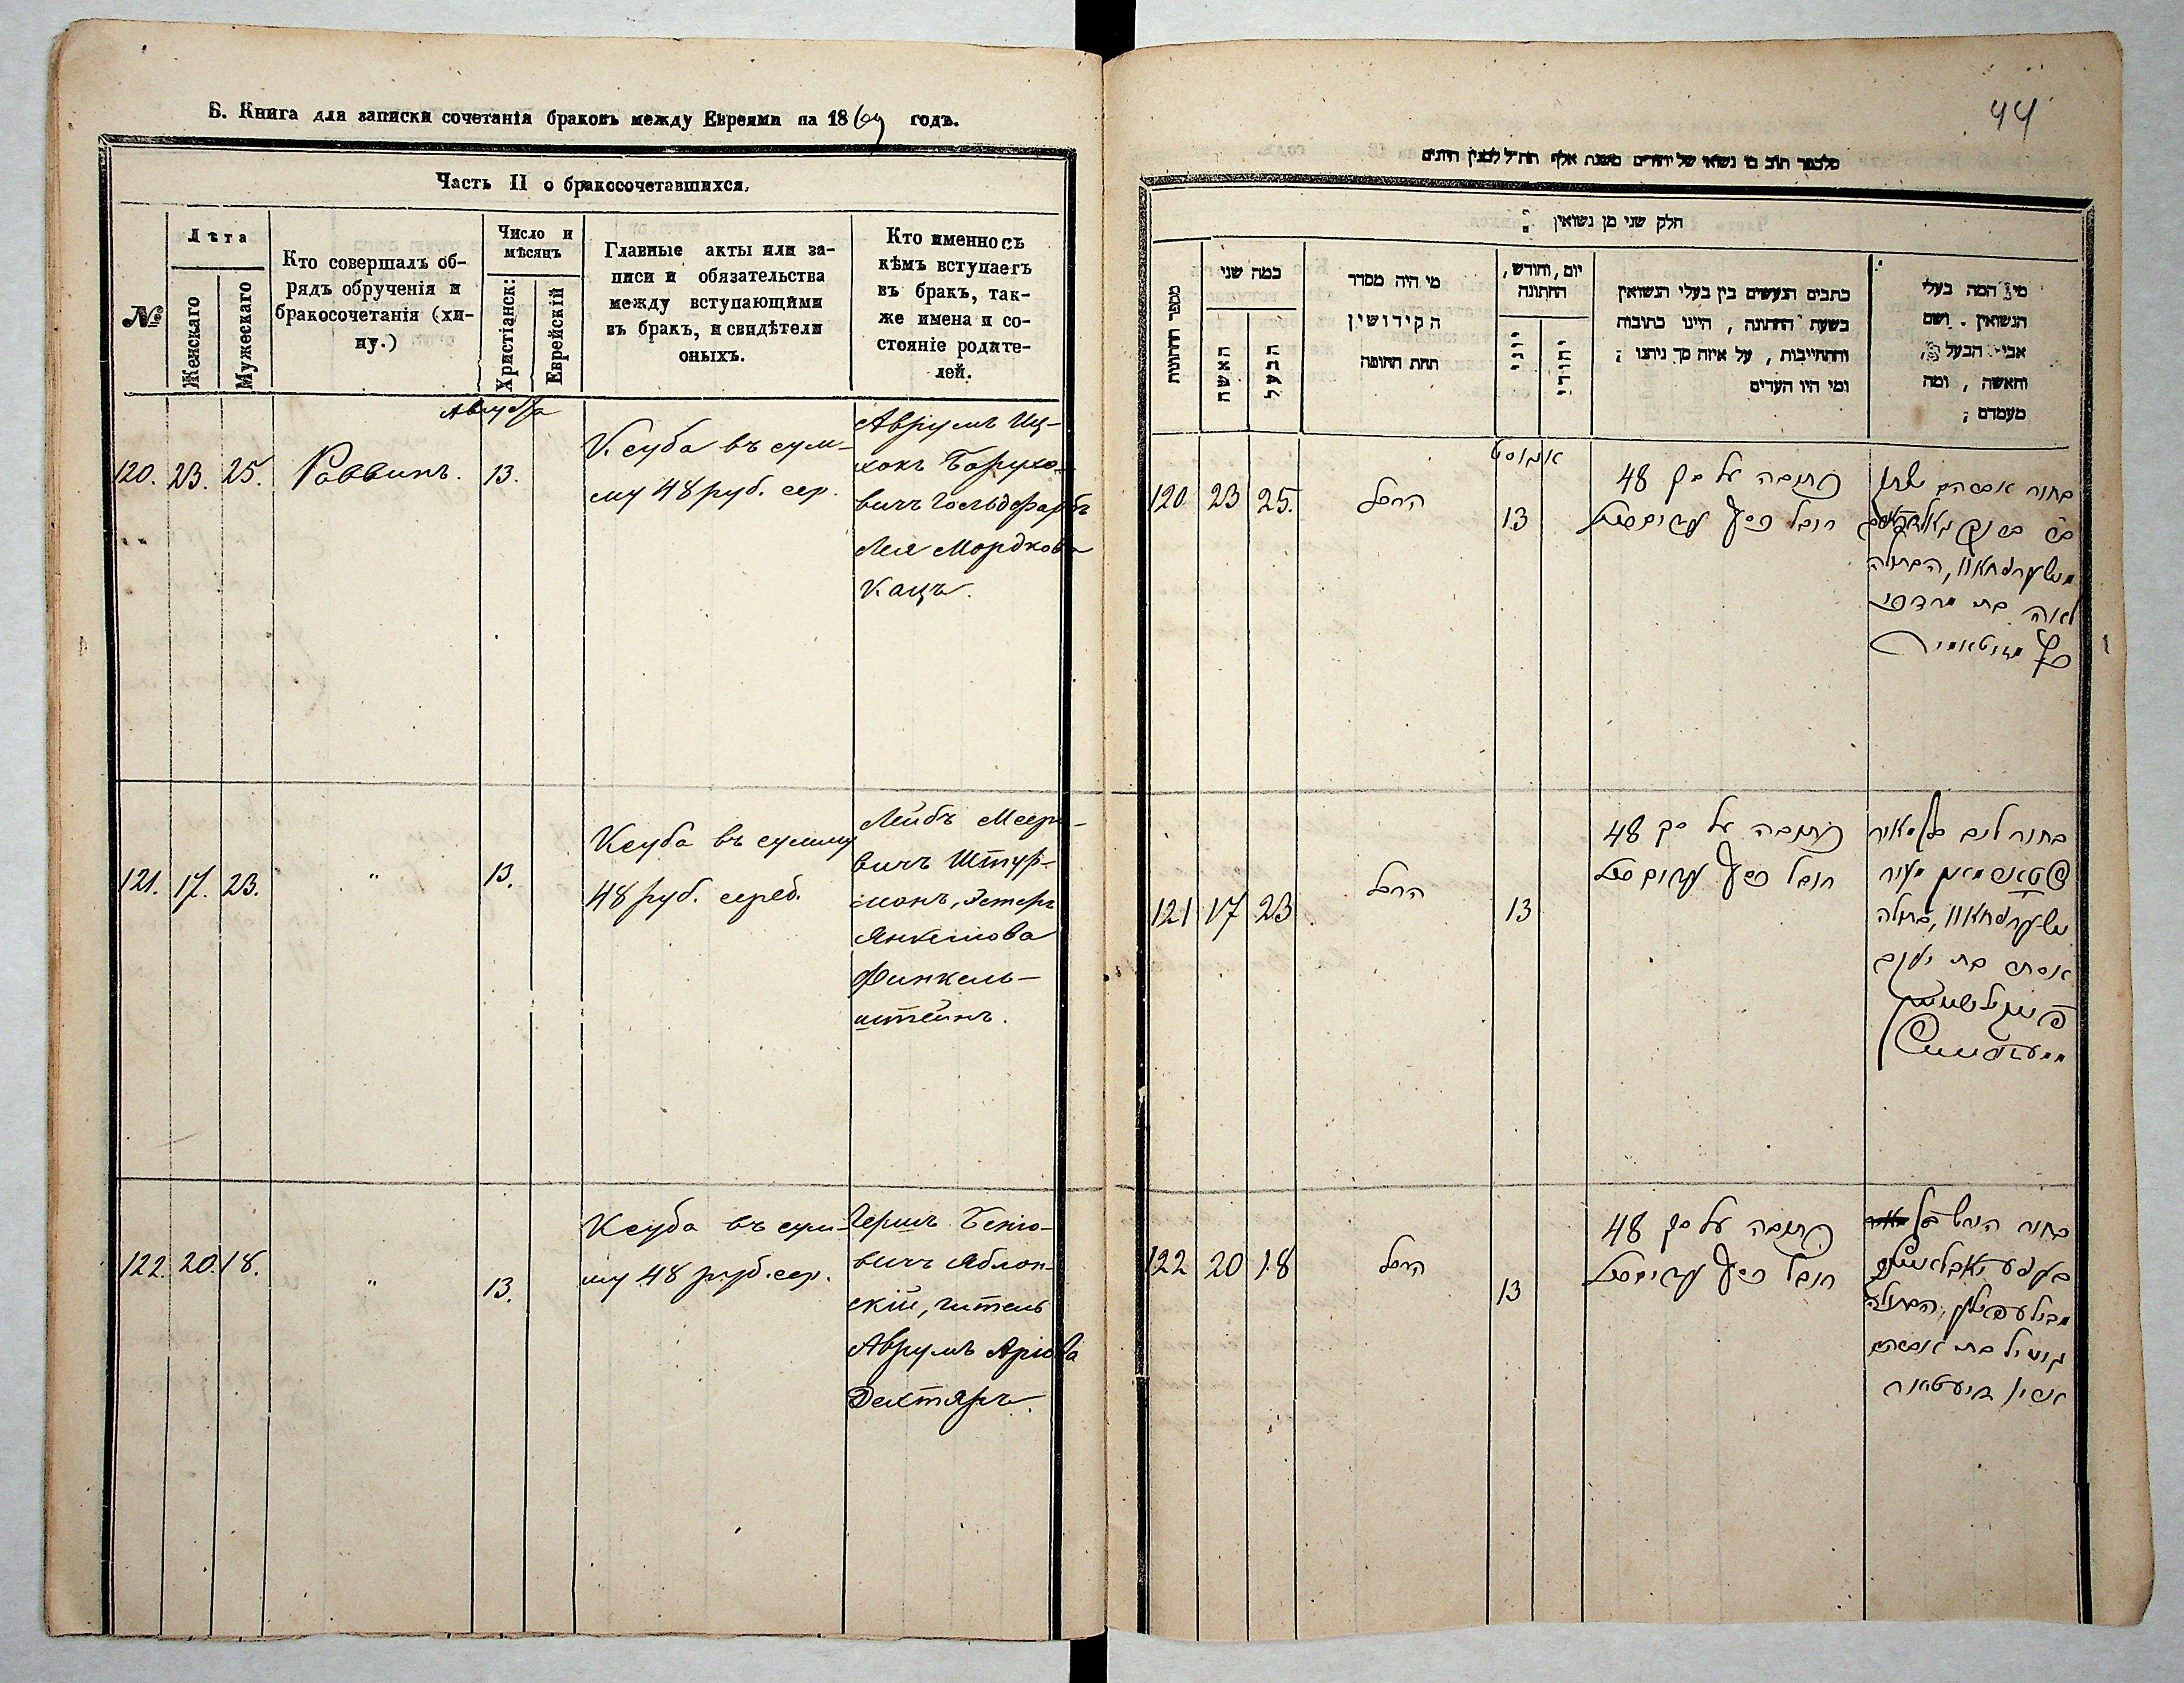 Б. Книга для записки сочетанія браковъ между Евреями на 1869 годъ.
Часть II о бракосочетавшихся.
№
Лѣта
Женскаго
Мужескаго
Кто совершалъ об-
рядъ обрученія и
бракосочетанія (хи-
пу.)
Число и
мѣсяцъ
Христіанск:
Еврейскій
Главные акты или за-
писи и обязательства
между вступающими
въ бракъ, и свидѣтели
оныхъ.
Кто именно съ
кѣмъ вступаетъ
въ бракъ, так-
же имена и со-
стояніе родите-
лей.
Августа
120. 23. 25. Раввинъ. 13.
Ксуба въ сум-
му 48 руб. сер.
Аврумъ Иц-
хокъ Борухо-
вичъ Гольдфарбъ
Лея Мордкова
Кацъ.
121. 17. 23. " 13.
Ксуба въ сумму
48 руб. сереб.
Лейбъ Мееро-
вичъ Штур-
монъ, Эстеръ
Янкелiова
Финкель-
штейнъ.
122. 20. 18. " 13.
Ксуба въ сум-
му 48 руб. сер.
Гершъ Бенiо-
вичъ Яблон-
скій, Гитель
Аврумъ Арiова
Дехтяръ.
44
חלק שני מן נשואין
מספר החתונות
כמה שני
האשה
הבעל
מי היה מסדר
הקידושין
תחת החופה
יום, וחודש,
החתונה
יוני
יהודי
כתבים הנעשים בין בעלי הנשואין
בשעת החתונה, היינו כתובות
והתחייבות, על איזה סך ניתנו;
ומי היו העדים
מי המה בעלי
הנשואין. ושם
אבי הבעל,
והאשה, ומה
מעמדם;
אוגוסט
120 23 25. הרב 13
כתובה על סך 48
רובל כסף
בחור אברהם יצחק
הבתולה
לאה בת מרדכי
כץ
121 17 23 הרב 13
כתובה על סך 48
רובל כסף
בחור ליב בן מאיר
בתולה
אסתר בת יעקב
122 20 18 הרב 13
כתובה על סך 48
רובל כסף
בחור הירש בן
הבתולה
גיטיל בת אברהם